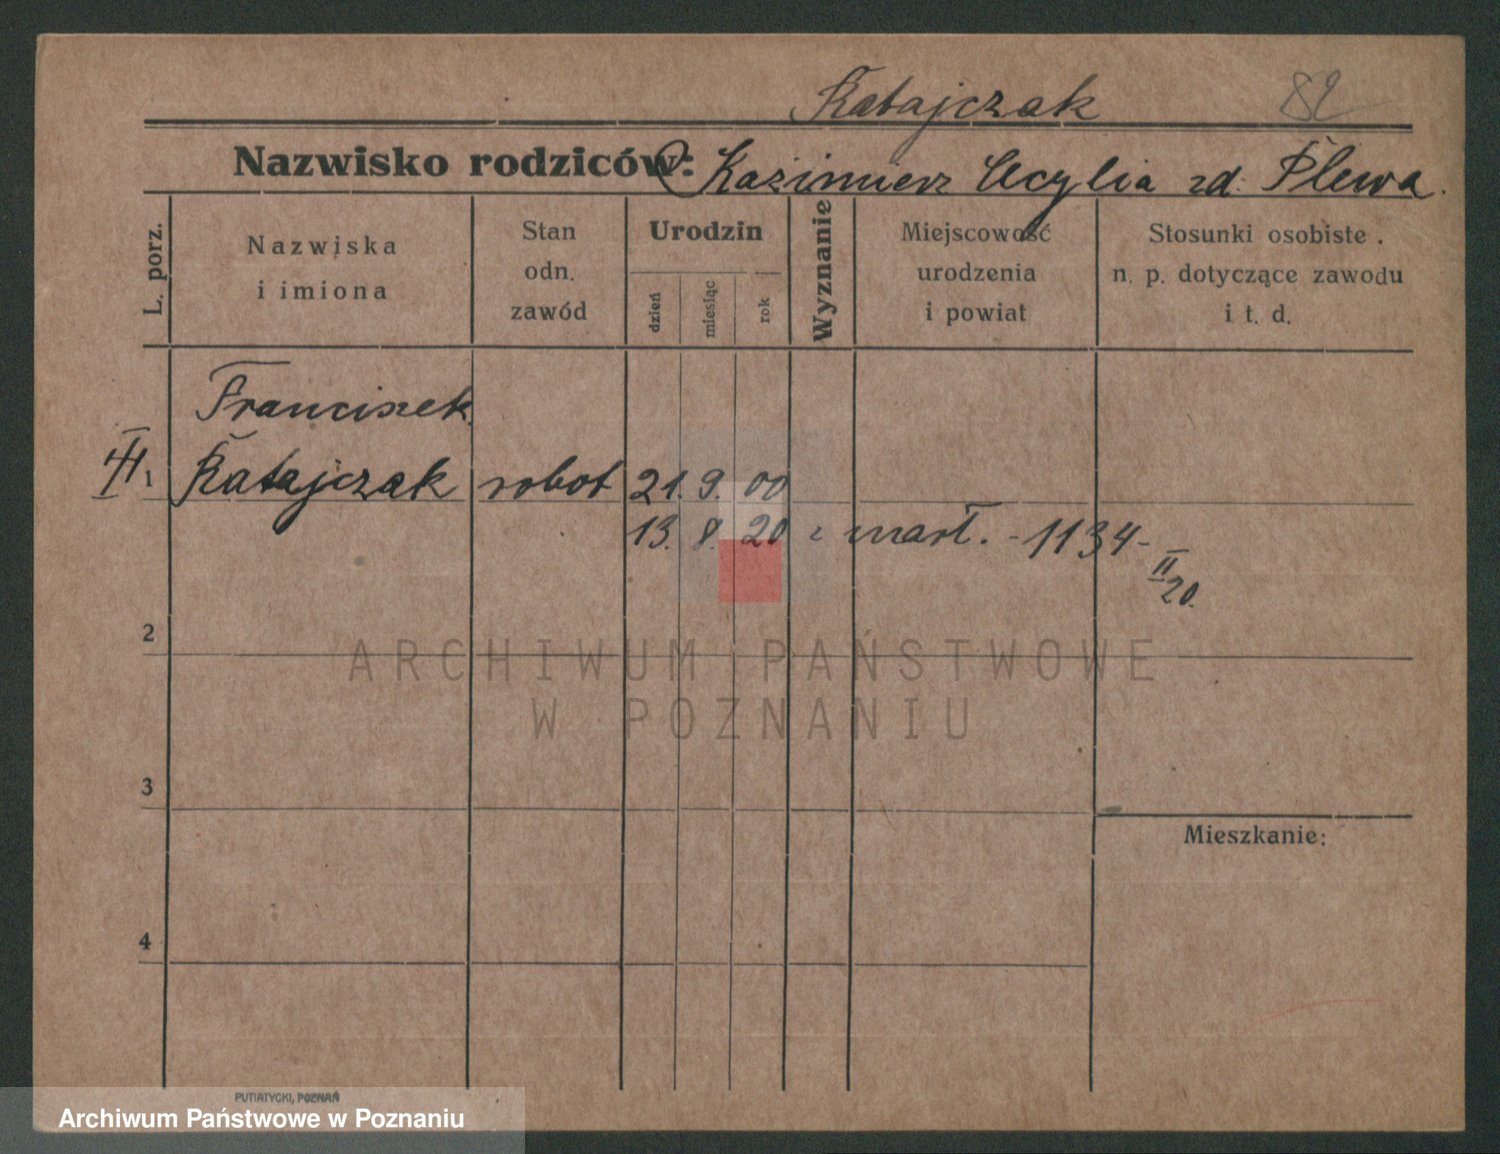 Ratajczak 82
Nazwisko rodziców: Kazimierz Cecylia zd. Plewa.
L. porz.
Nazwiska
i imiona
Stan
odn.
zawód
Urodzin
dzień
miesiąc
rok
Wyznanie
Miejscowość
urodzenia
i powiat
Stosunki osobiste.
n. p. dotyczące zawodu
i t. d.
Franciszek
1 Ratajczak robot 21. 9. 00
13. 8. 20 zmarł. -1134-
II
20.
2
ARCHIWUM PAŃSTWOWE
W POZNANIU
3
Mieszkanie:
4
PUTIATYCKI, POZNAŃ
Archiwum Państwowe w Poznaniu